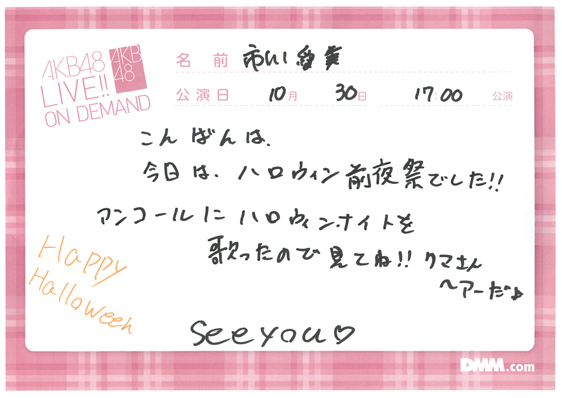 AKB48
LIVE!!
ON DEMAND
AKB
48
名 前 市川 愛美
公演日 10月 30日 17:00 公演
こんばんは、
今日は、ハロウィン前夜祭でした!!
アンコールにハロウィンナイトを
歌ったので見てね!! クマさん
〜アーだ♪
Happy
Halloween
see you♡
DMM.com